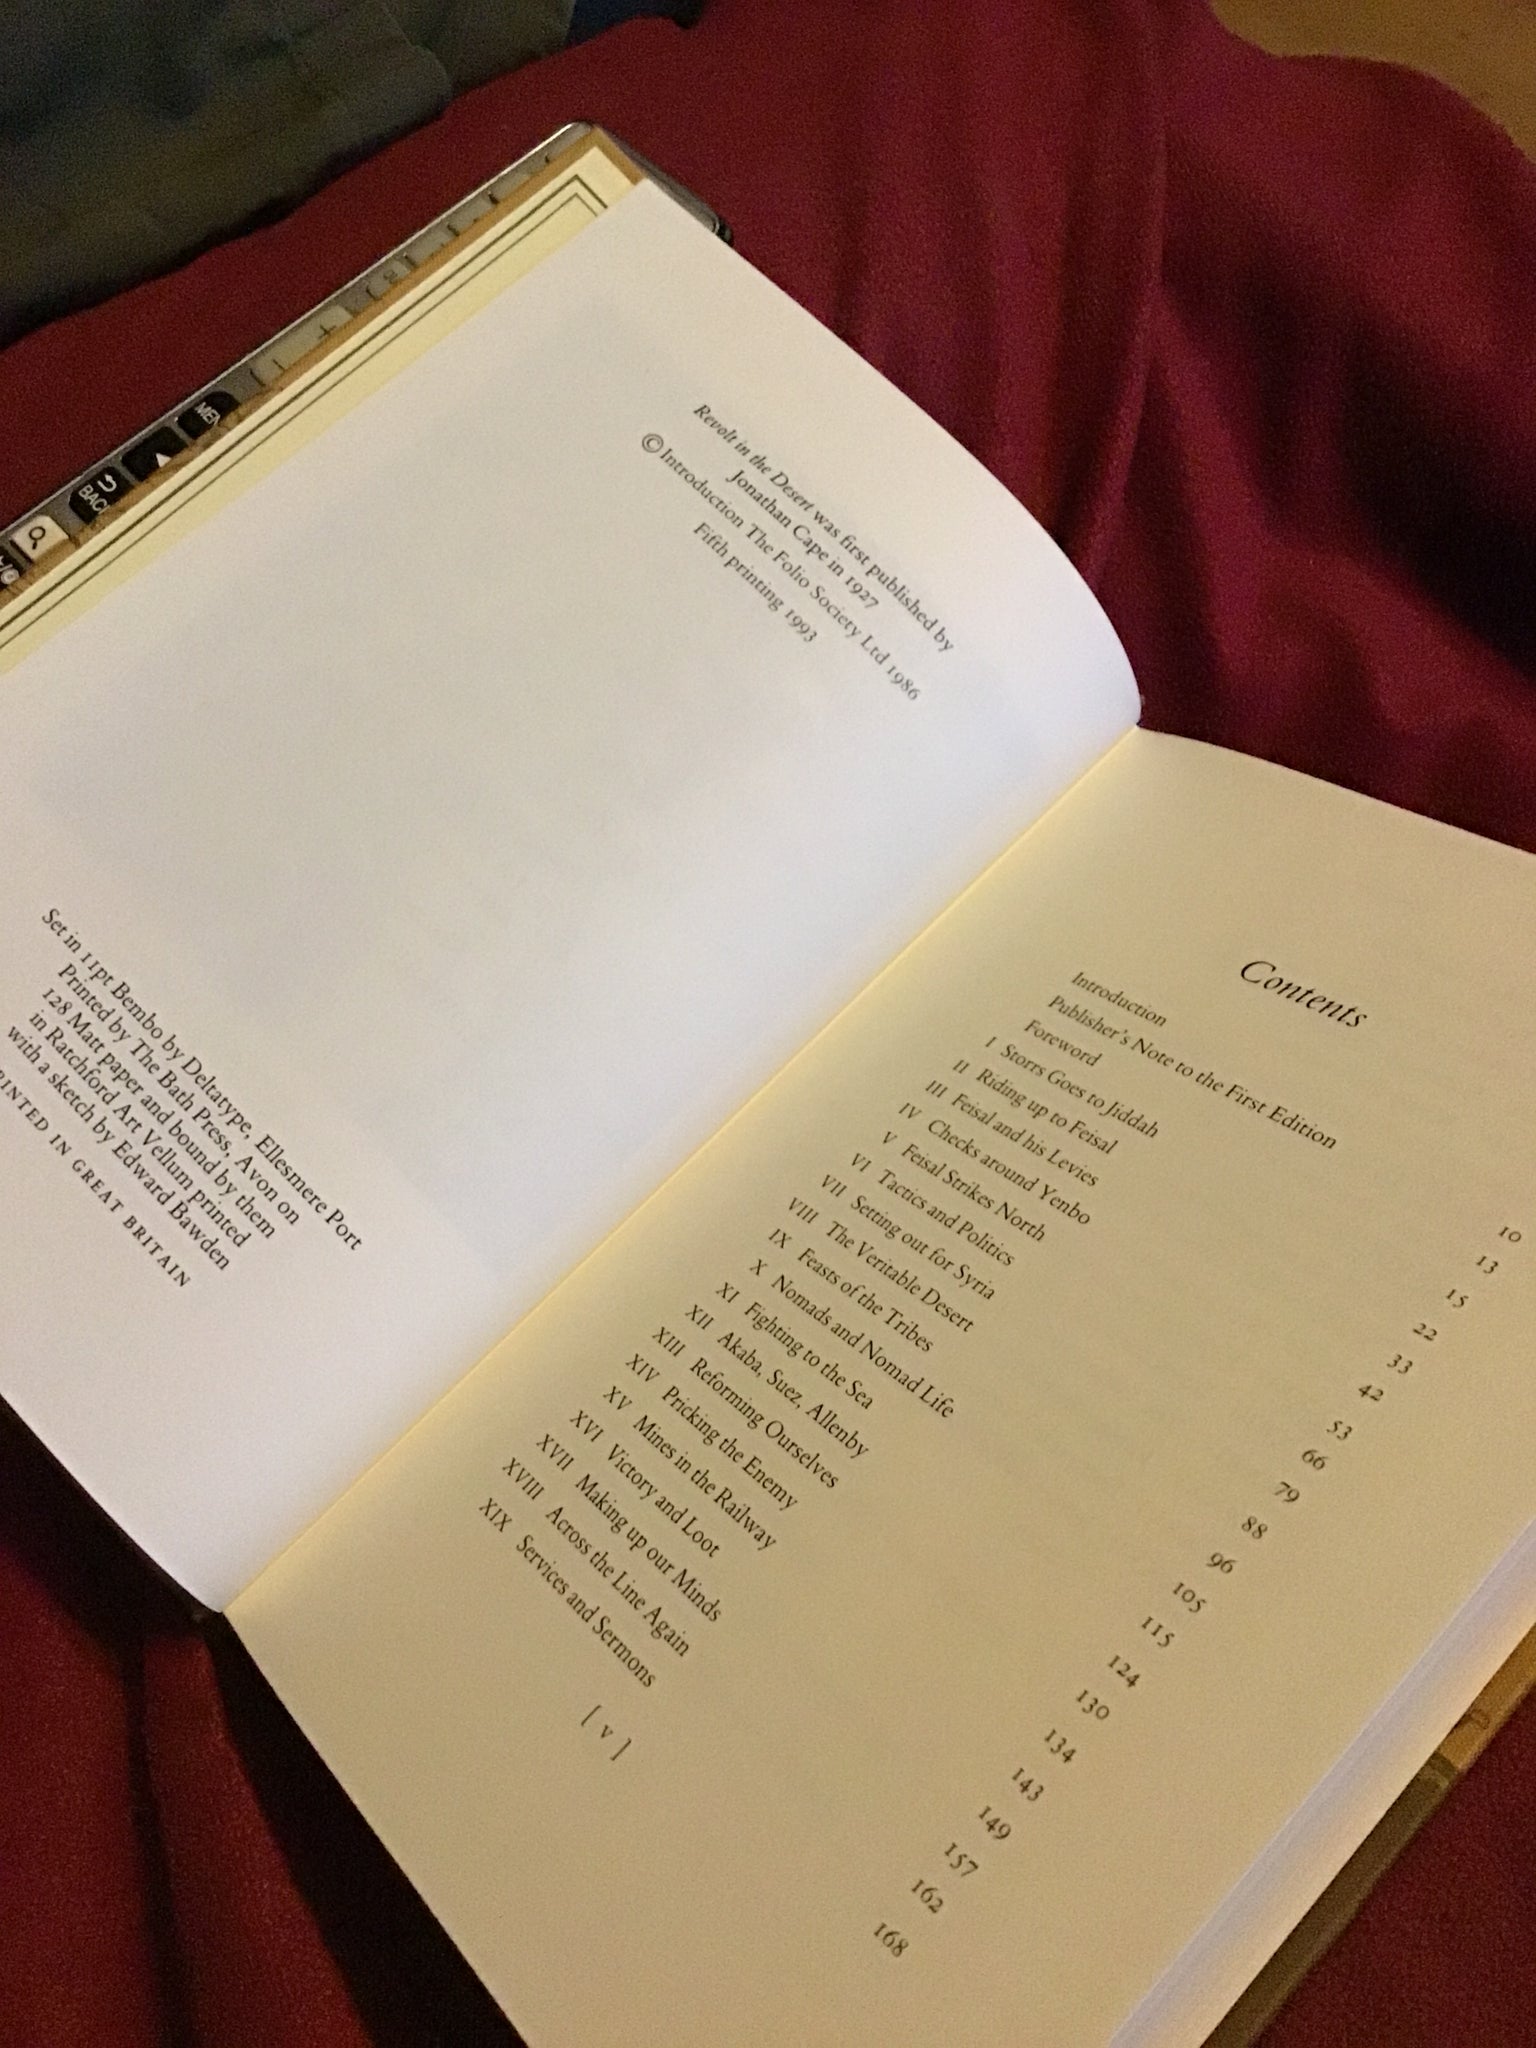 Revolt in the Desert was first published by
Jonathan Cape in 1927
© Introduction The Folio Society Ltd 1986
Fifth printing 1993
Set in 11pt Bembo by Deltatype, Ellesmere Port
Printed by The Bath Press, Avon on
128 Matt paper and bound by them
in Ratchford Art Vellum printed
with a sketch by Edward Bawden
RINTED IN GREAT BRITAIN
Contents
Introduction
Publisher's Note to the First Edition 10
Foreword 13
I Storrs Goes to Jiddah 15
II Riding up to Feisal 22
III Feisal and his Levies 33
IV Checks around Yenbo 42
V Feisal Strikes North 53
VI Tactics and Politics 66
VII Setting out for Syria 79
VIII The Veritable Desert 88
IX Feasts of the Tribes 96
X Nomads and Nomad Life 105
XI Fighting to the Sea 115
XII Akaba, Suez, Allenby 124
XIII Reforming Ourselves 130
XIV Pricking the Enemy 134
XV Mines in the Railway 143
XVI Victory and Loot 149
XVII Making up our Minds 157
XVIII Across the Line Again 162
XIX Services and Sermons 168
[ v ]